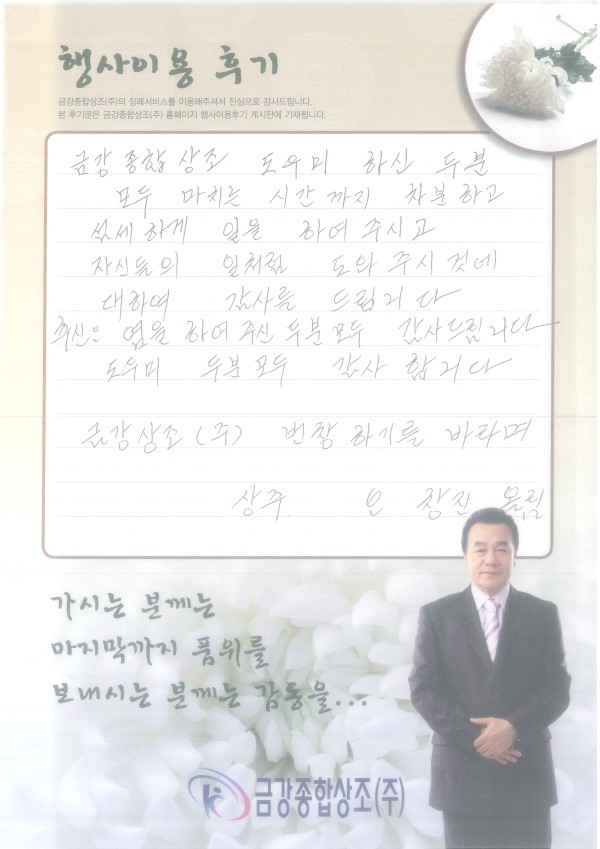 행사이용 후기
금강종합상조(주)의 장례서비스를 이용해주셔서 진심으로 감사드립니다.
본 후기문은 금강종합상조(주) 홈페이지 행사이용후기 게시판에 기재됩니다.
금강 종합 상조 도우미 하신 두분
모두 마치는 시간 까지 차분하고
섬세하게 일을 하여 주시고
자신들의 일처럼 도와 주시 것네
대하여 감사를 드립니다
염을 하여 주신 두분 모두 감사드립니다
도우미 두분 모두 감사 합니다
금강상조(주) 번창 하기를 바라며
상주. 오 창진 올림
가시는 분께는
마지막까지 품위를
보내시는 분께는 감동을...
금강종합상조(주)